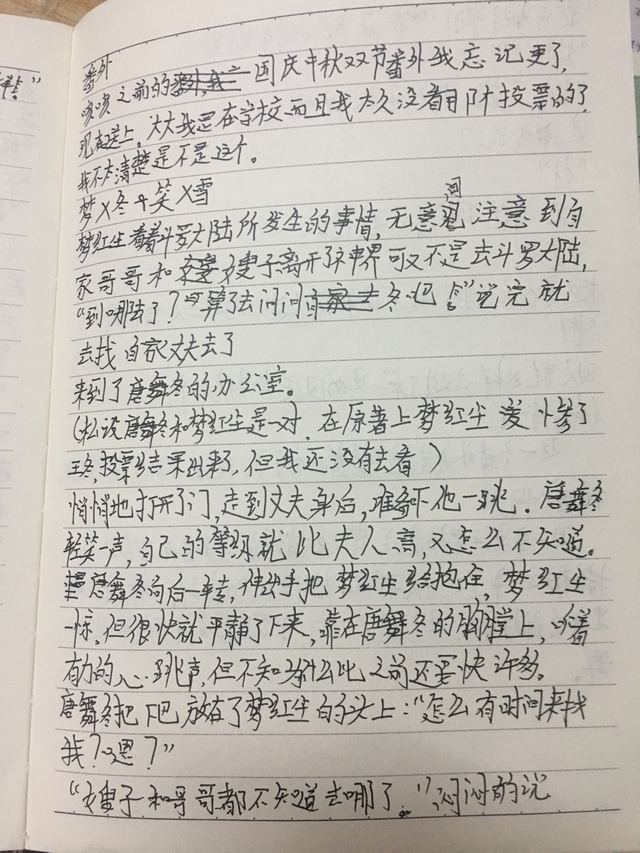 番外
咳咳之前的番外我 国庆中秋双节番外我忘记更了,
现在送上。大大我是在学校而且我太久没看目阡投票的了,
我不太清楚是不是这个。
梦X冬+笑X雪
梦红尘看着斗罗大陆所发生的事情,无意间注意到自
家哥哥和嫂子离开了神界可又不是去斗罗大陆,
“到哪去了?算了去问问冬吧!”说完就
去找自家丈夫去了
来到了唐舞冬的办公室。
(私设唐舞冬和梦红尘是一对.在原著上梦红尘爱惨了
王冬,投票结果出来了,但我还没有去看)
悄悄地打开了门,走到丈夫身后,准备吓他一跳.唐舞冬
轻笑一声,自己的等级就比夫人高,又怎么不知道。
唐舞冬向后一转,伸出手把梦红尘给抱住,梦红尘
一惊,但很快就平静了下来,靠在唐舞冬的胸膛上,听着
有力的心跳声,但不知为什么比之前还要快许多。
唐舞冬把下巴放在了梦红尘的头上:“怎么有时间来找
我?嗯?”
“嫂子和哥哥都不知道去哪了。”闷闷的说